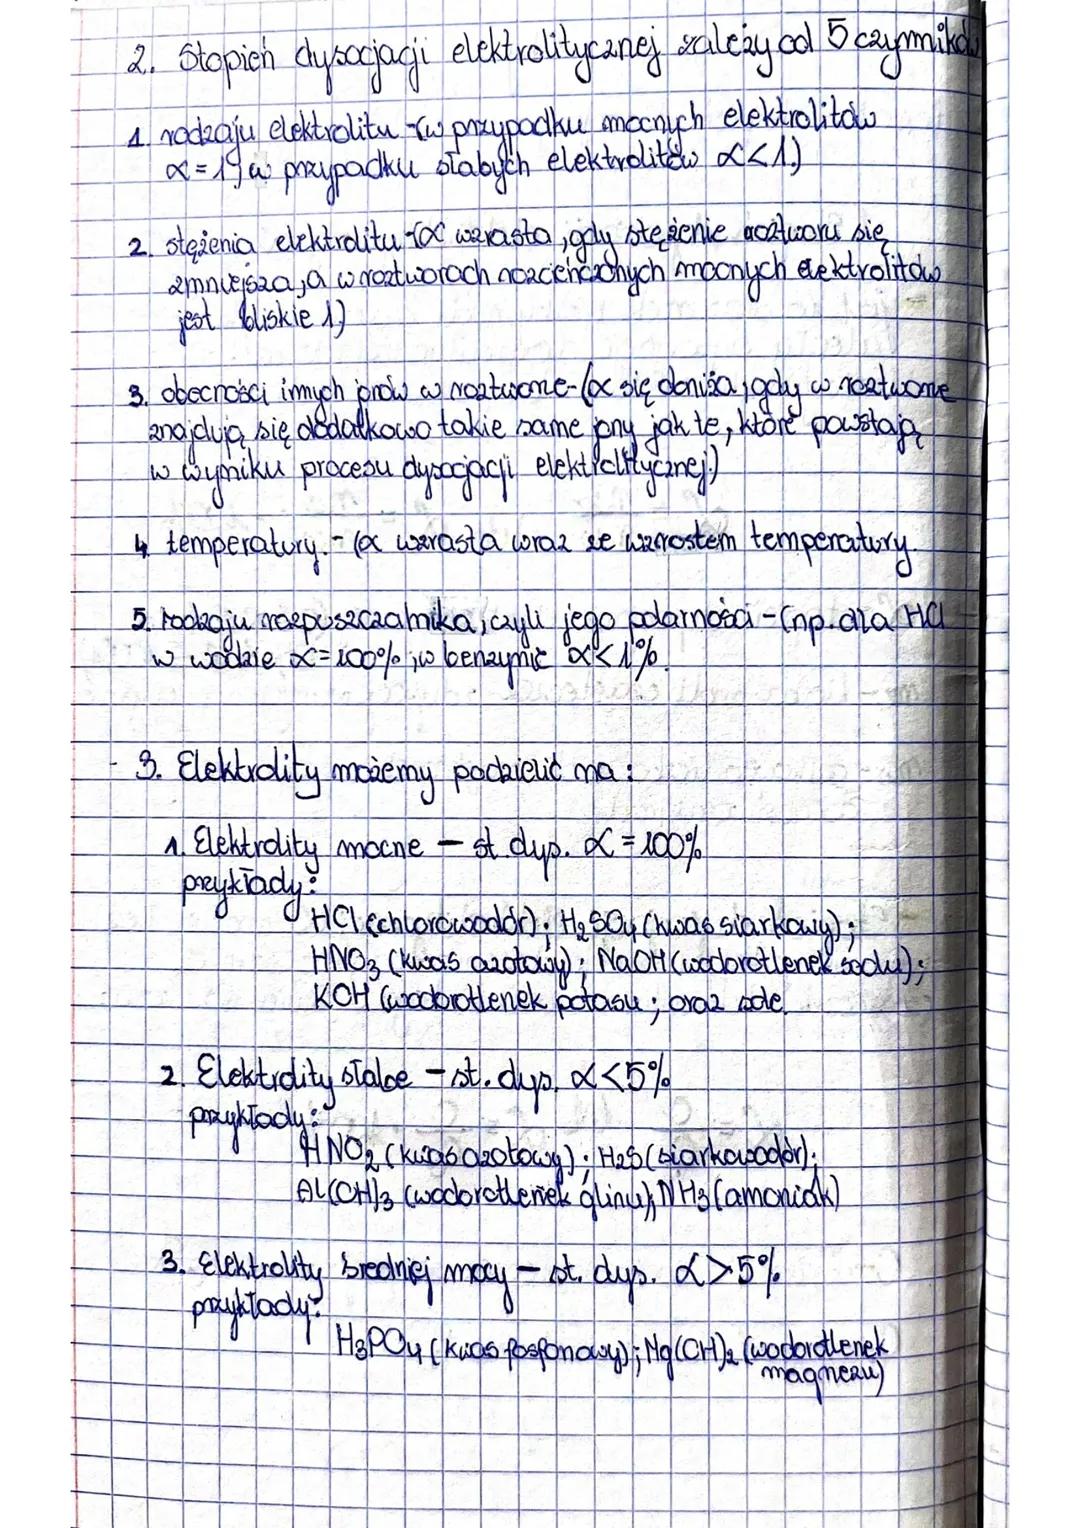 2. Stopień dysocjacji elektrolitycznej zależy od 5 czynników
1. rodzaju elektrolitu -(w przypadku mocnych elektrolitów
α = 1, a w przypadku słabych elektrolitów α<1.)
2. stężenia elektrolitu -(α wzrasta, gdy stężenie roztworu się
zmniejsza, a w roztworach rozcieńczonych mocnych elektrolitów
jest bliskie 1)
3. obecności innych jonów w roztworze-(α się obniża, gdy w roztworze
znajdują się dodatkowo takie same jony jak te, które powstają
w wyniku procesu dysocjacji elektrolitycznej.)
4. temperatury. - (α wzrasta wraz ze wzrostem temperatury.
5. rodzaju rozpuszczalnika, czyli jego polarności - (np. dla HCl
w wodzie α=100%, w benzynie α<1%.
3. Elektrolity możemy podzielić na:
1. Elektrolity mocne – st. dys. α = 100%
przykłady:
HCl (chlorowodór); H₂SO₄ (kwas siarkowy);
HNO₃ (kwas azotowy); NaOH (wodorotlenek sodu);
KOH (wodorotlenek potasu; oraz sole.
2. Elektrolity słabe – st. dys. α<5%
przykłady:
HNO₂ (kwas azotowy); H2S (siarkowodór);
Al(OH)₃ (wodorotlenek glinu), NH₃ (amoniak)
3. Elektrolity średniej mocy – st. dys. α>5%
przykłady:
H₃PO₄ (kwas fosforowy); Mg(OH)₂ (wodorotlenek
magnezu)